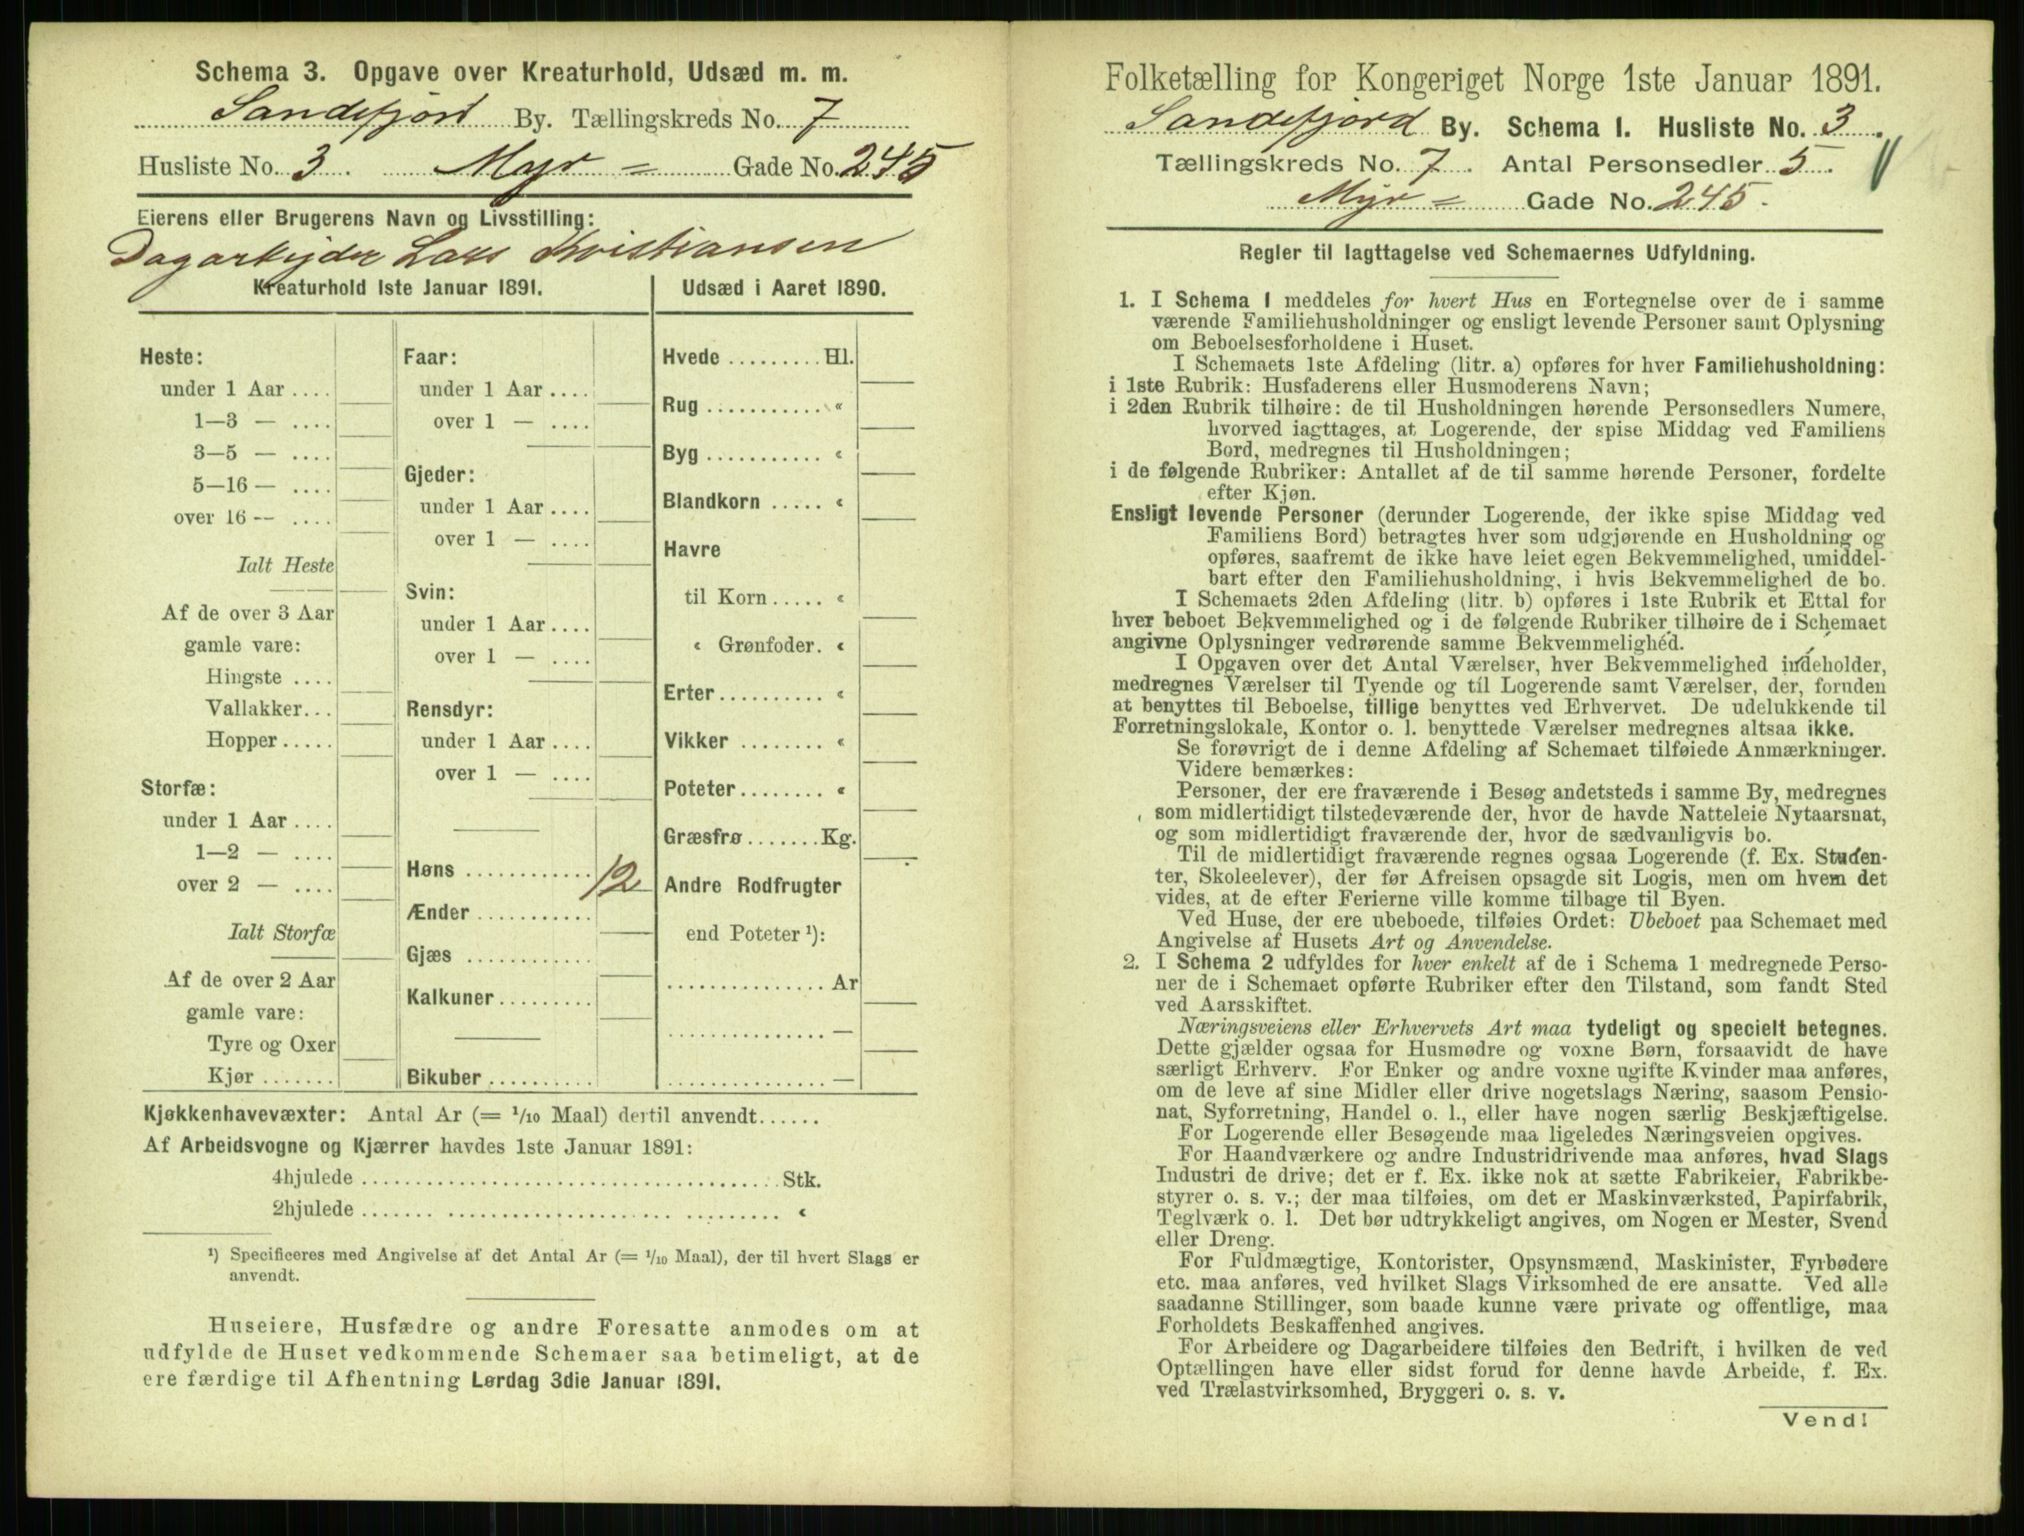 Schema 3. Opgave over Kreaturhold, Udsæd m. m.
Sandefjord By. Tællingskreds No. 7
Husliste No. 3. Myr = Gade No. 245
Eierens eller Brugerens Navn og Livsstilling:
Dagarbejder Lars Kristiansen
Kreaturhold 1ste Januar 1891.
Heste:
under 1 Aar ....
1—3 — ....
3—5 — ....
5—16 — ....
over 16 — ....
Ialt Heste
Af de over 3 Aar
gamle vare:
Hingste ....
Vallakker...
Hopper.....
Storfæ:
under 1 Aar ....
1—2 — ....
over 2 — ....
Ialt Storfæ
Af de over 2 Aar
gamle vare:
Tyre og Oxer
Kjør .......
Faar:
under 1 Aar ....
over 1 — ....
Gjeder:
under 1 Aar ....
over 1 — ....
Svin:
under 1 Aar ....
over 1 — ....
Rensdyr:
under 1 Aar ....
over 1 — ....
Høns ............ 12
Ænder ...........
Gjæs ............
Kalkuner.........
Bikuber ..........
Udsæd i Aaret 1890.
Hvede ......... Hl.
Rug ........... «
Byg ........... «
Blandkorn ..... «
Havre
til Korn ..... «
« Grønfoder. «
Erter.......... «
Vikker ........ «
Poteter........ «
Græsfrø ....... Kg.
Andre Rodfrugter
end Poteter ¹):
............... Ar
............... —
............... —
Kjøkkenhavevæxter: Antal Ar (= 1/10 Maal) dertil anvendt......
Af Arbeidsvogne og Kjærrer havdes 1ste Januar 1891:
4hjulede ........................................ Stk.
2hjulede ........................................ «
¹) Specificeres med Angivelse af det Antal Ar (= 1/10 Maal), der til hvert Slags er
anvendt.
Huseiere, Husfædre og andre Foresatte anmodes om at
udfylde de Huset vedkommende Schemaer saa betimeligt, at de
ere færdige til Afhentning Lørdag 3die Januar 1891.
Folketælling for Kongeriget Norge 1ste Januar 1891.
Sandefjord By. Schema 1. Husliste No. 3.
Tællingskreds No. 7. Antal Personsedler 5.
Myr = Gade No. 245.
Regler til Iagttagelse ved Schemaernes Udfyldning.
1. I Schema 1 meddeles for hvert Hus en Fortegnelse over de i samme
værende Familiehusholdninger og ensligt levende Personer samt Oplysning
om Beboelsesforholdene i Huset.
I Schemaets 1ste Afdeling (litr. a) opføres for hver Familiehusholdning:
i 1ste Rubrik: Husfaderens eller Husmoderens Navn;
i 2den Rubrik tilhøire: de til Husholdningen hørende Personsedlers Numere,
hvorved iagttages, at Logerende, der spise Middag ved Familiens
Bord, medregnes til Husholdningen;
i de følgende Rubriker: Antallet af de til samme hørende Personer, fordelte
efter Kjøn.
Ensligt levende Personer (derunder Logerende, der ikke spise Middag ved
Familiens Bord) betragtes hver som udgjørende en Husholdning og
opføres, saafremt de ikke have leiet egen Bekvemmelighed, umiddel-
bart efter den Familiehusholdning, i hvis Bekvemmelighed de bo.
I Schemaets 2den Afdeling (litr. b) opføres i 1ste Rubrik et Ettal for
hver beboet Bekvemmelighed og i de følgende Rubriker tilhøire de i Schemaet
angivne Oplysninger vedrørende samme Bekvemmelighed.
I Opgaven over det Antal Værelser, hver Bekvemmelighed indeholder,
medregnes Værelser til Tyende og til Logerende samt Værelser, der, foruden
at benyttes til Beboelse, tillige benyttes ved Erhvervet. De udelukkende til
Forretningslokale, Kontor o. l. benyttede Værelser medregnes altsaa ikke.
Se forøvrigt de i denne Afdeling af Schemaet tilføiede Anmærkninger.
Videre bemærkes:
Personer, der ere fraværende i Besøg andetsteds i samme By, medregnes
som midlertidigt tilstedeværende der, hvor de havde Natteleie Nytaarsnat,
og som midlertidigt fraværende der, hvor de sædvanligvis bo.
Til de midlertidigt fraværende regnes ogsaa Logerende (f. Ex. Studen-
ter, Skoleelever), der før Afreisen opsagde sit Logis, men om hvem det
vides, at de efter Ferierne ville komme tilbage til Byen.
Ved Huse, der ere ubeboede, tilføies Ordet: Ubeboet paa Schemaet med
Angivelse af Husets Art og Anvendelse.
2. I Schema 2 udfyldes for hver enkelt af de i Schema 1 medregnede Perso-
ner de i Schemaet opførte Rubriker efter den Tilstand, som fandt Sted
ved Aarsskiftet.
Næringsveiens eller Erhvervets Art maa tydeligt og specielt betegnes.
Dette gjælder ogsaa for Husmødre og voxne Børn, forsaavidt de have
særligt Erhverv. For Enker og andre voxne ugifte Kvinder maa anføres,
om de leve af sine Midler eller drive nogetslags Næring, saasom Pensio-
nat, Syforretning, Handel o. l., eller have nogen særlig Beskjæftigelse.
For Logerende eller Besøgende maa ligeledes Næringsveien opgives.
For Haandværkere og andre Industridrivende maa anføres, hvad Slags
Industri de drive; det er f. Ex. ikke nok at sætte Fabrikeier, Fabrikbe-
styrer o. s. v.; der maa tilføies, om det er Maskinværksted, Papirfabrik,
Teglværk o. l. Det bør udtrykkeligt angives, om Nogen er Mester, Svend
eller Dreng.
For Fuldmægtige, Kontorister, Opsynsmænd, Maskinister, Fyrbødere
etc. maa anføres, ved hvilket Slags Virksomhed de ere ansatte. Ved alle
saadanne Stillinger, som baade kunne være private og offentlige, maa
Forholdets Beskaffenhed angives.
For Arbeidere og Dagarbeidere tilføies den Bedrift, i hvilken de ved
Optællingen have eller sidst forud for denne havde Arbeide, f. Ex.
ved Trælastvirksomhed, Bryggeri o. s. v.
Vend!